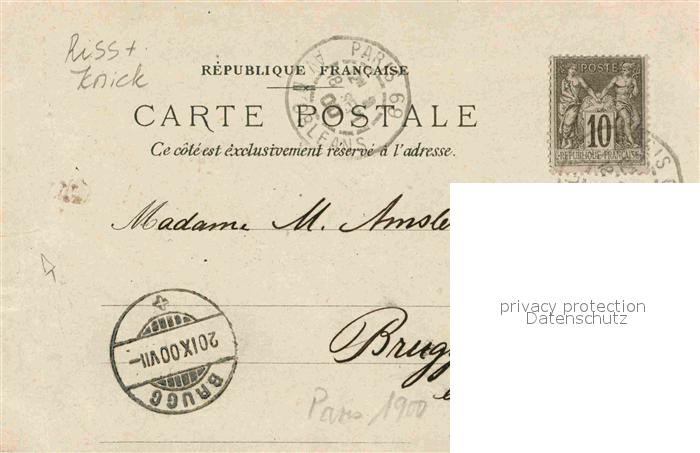 Riss +
Knick
RÉPUBLIQUE FRANÇAISE
CARTE POSTALE
Ce côté est exclusivement réservé à l'adresse.
PARIS 69
ORLEANS
POSTE
10
REPUBLIQUE FRANÇAISE
Madame M. Amsle
privacy protection
Datenschutz
20 IX 00 VII-
BRUGG
Brugg
Paris 1900